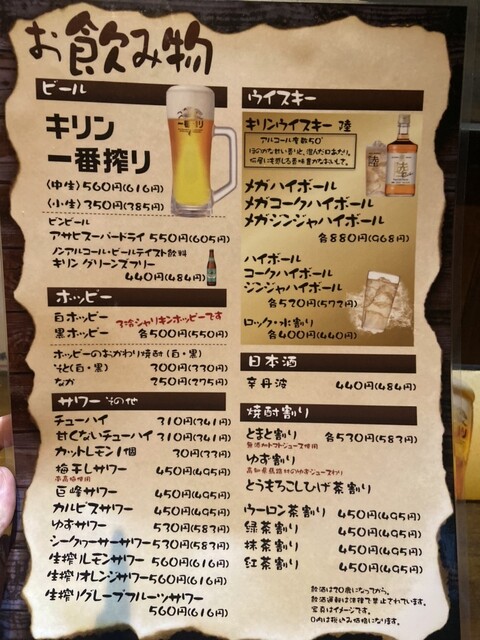 お飲み物
ビール
キリン
一番搾り
(中生) 560円(616円)
(小生) 350円(385円)
ビンビール
アサヒスーパードライ 550円(605円)
ノンアルコール・ビールテイスト飲料
キリン グリーンズフリー
440円(484円)
ホッピー
白ホッピー
黒ホッピー 各500円(550円)
3冷シャリキンホッピーです
ホッピーのおかわり焼酎(白・黒)
そと(白・黒) 300円(330円)
なか 250円(275円)
サワー その他
チューハイ 310円(341円)
甘くないチューハイ 310円(341円)
カットレモン1個 30円(33円)
梅干しサワー 450円(495円)
南高梅使用
巨峰サワー 450円(495円)
カルピスサワー 450円(495円)
ゆずサワー 530円(583円)
シークヮーサーサワー 530円(583円)
生搾りレモンサワー 560円(616円)
生搾りオレンジサワー 560円(616円)
生搾りグレープフルーツサワー
560円(616円)
ウイスキー
キリンウイスキー 陸
アルコール度数50°
メガハイボール
メガコークハイボール
メガジンジャハイボール
各880円(968円)
ハイボール
コークハイボール
ジンジャハイボール
各520円(572円)
ロック・水割り
各400円(440円)
日本酒
辛丹波 440円(484円)
焼酎割り
とまと割り 各530円(583円)
無添加トマトジュース使用
ゆず割り
とうもろこしひげ茶割り
ウーロン茶割り 450円(495円)
緑茶割り 450円(495円)
抹茶割り 450円(495円)
紅茶割り 450円(495円)
飲酒は20歳になってから。
飲酒運転は法律で禁止されています。
写真はイメージです。
()内は税込み価格になります。